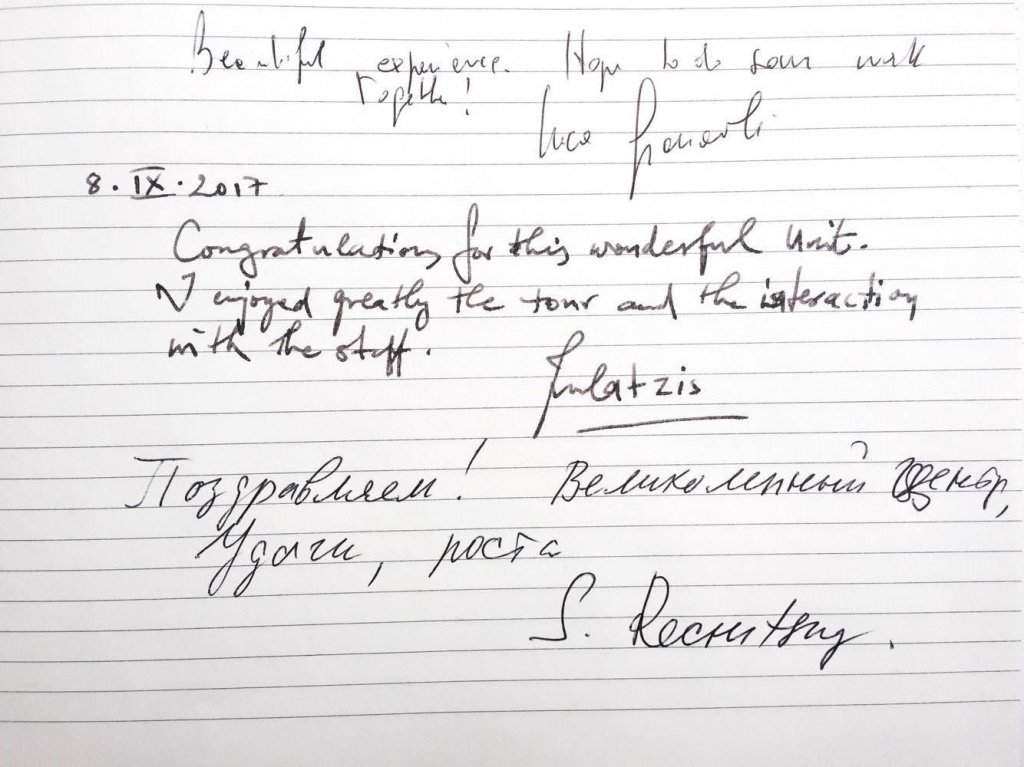 Beautiful experience. Hope to do some work
Together!
Luca
8. IX. 2017
Congratulations for this wonderful Unit.
I enjoyed greatly the tour and the interaction
with the staff.
Поздравляем! Великолепный центр,
Удачи, роста
S.